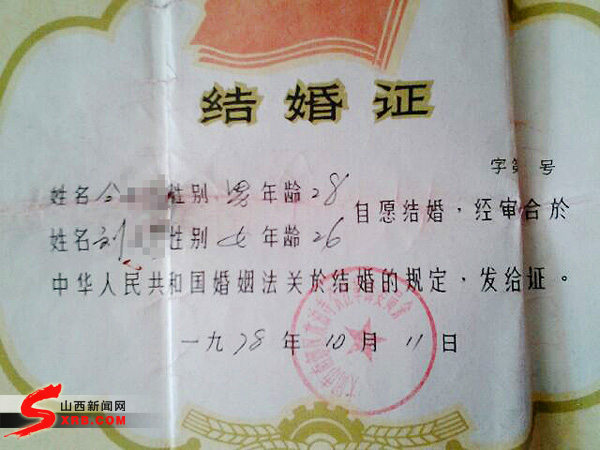 结婚证
字第 号
姓名 性别 男 年龄 28
自愿结婚，经审合於
姓名 刘 性别 女 年龄 26
中华人民共和国婚姻法关於结婚的规定，发给证。
一九78年10月11日
山西新闻网
SXRB.COM